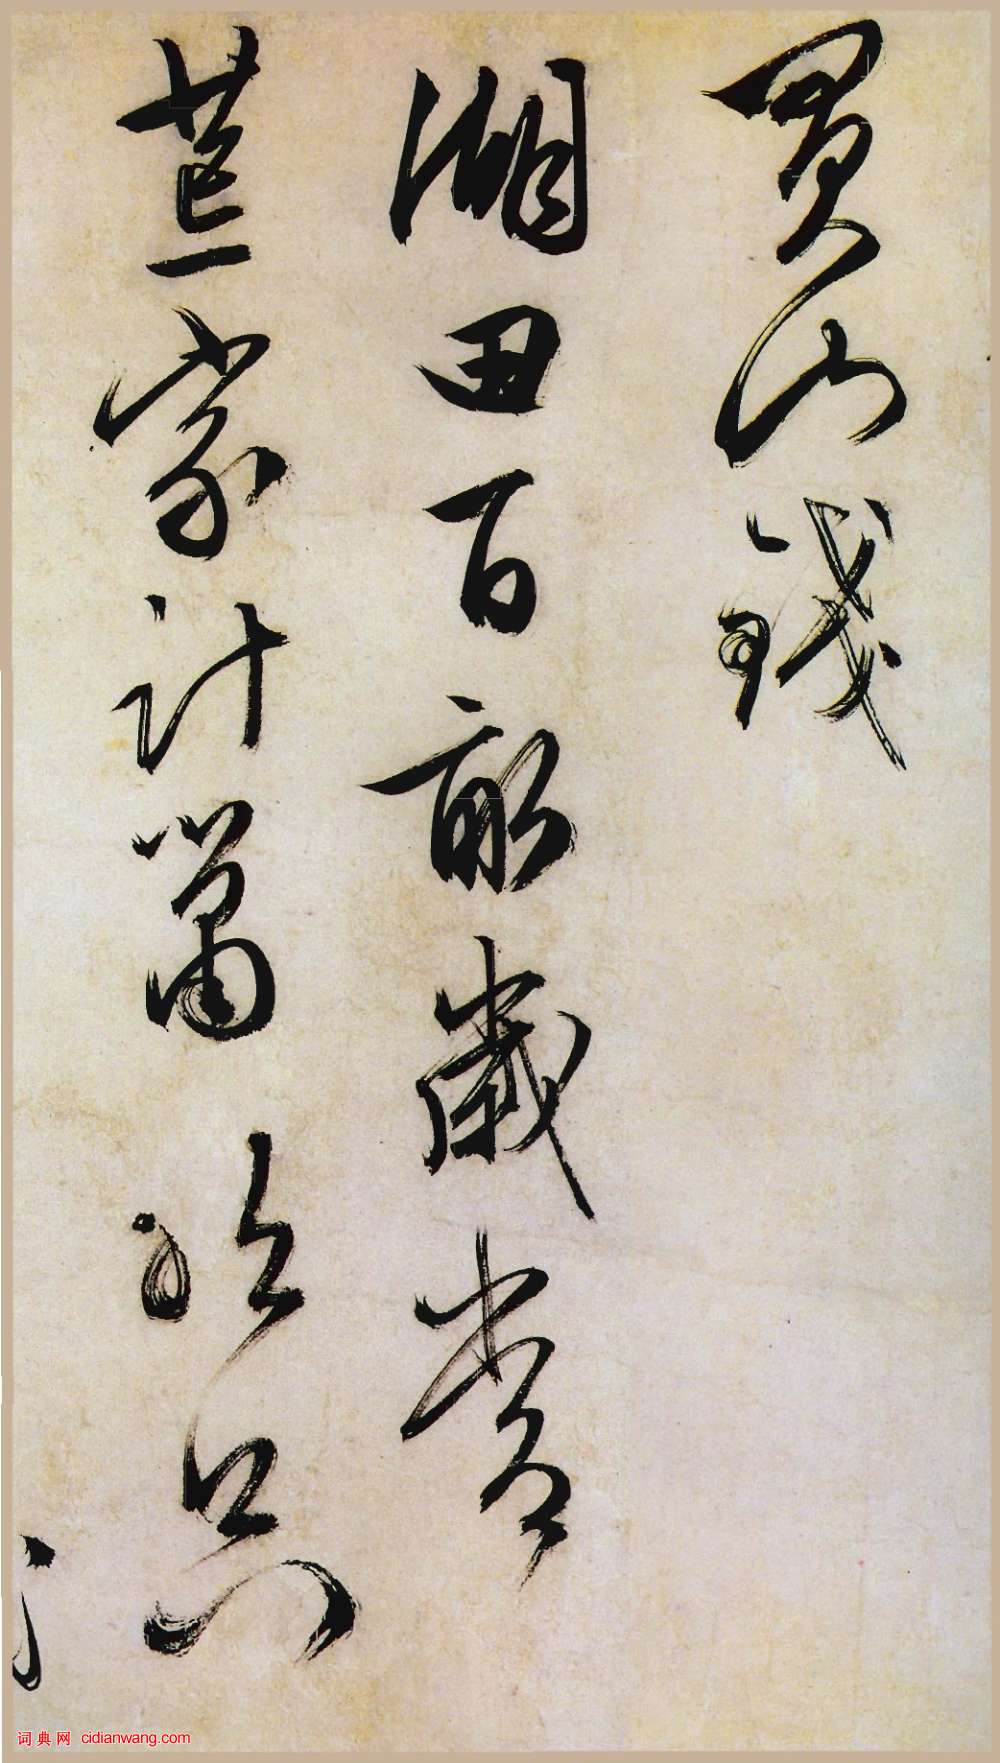 買山錢
湖田百畝歲常
荒家計蕭然只
词典网 cidianwang.com